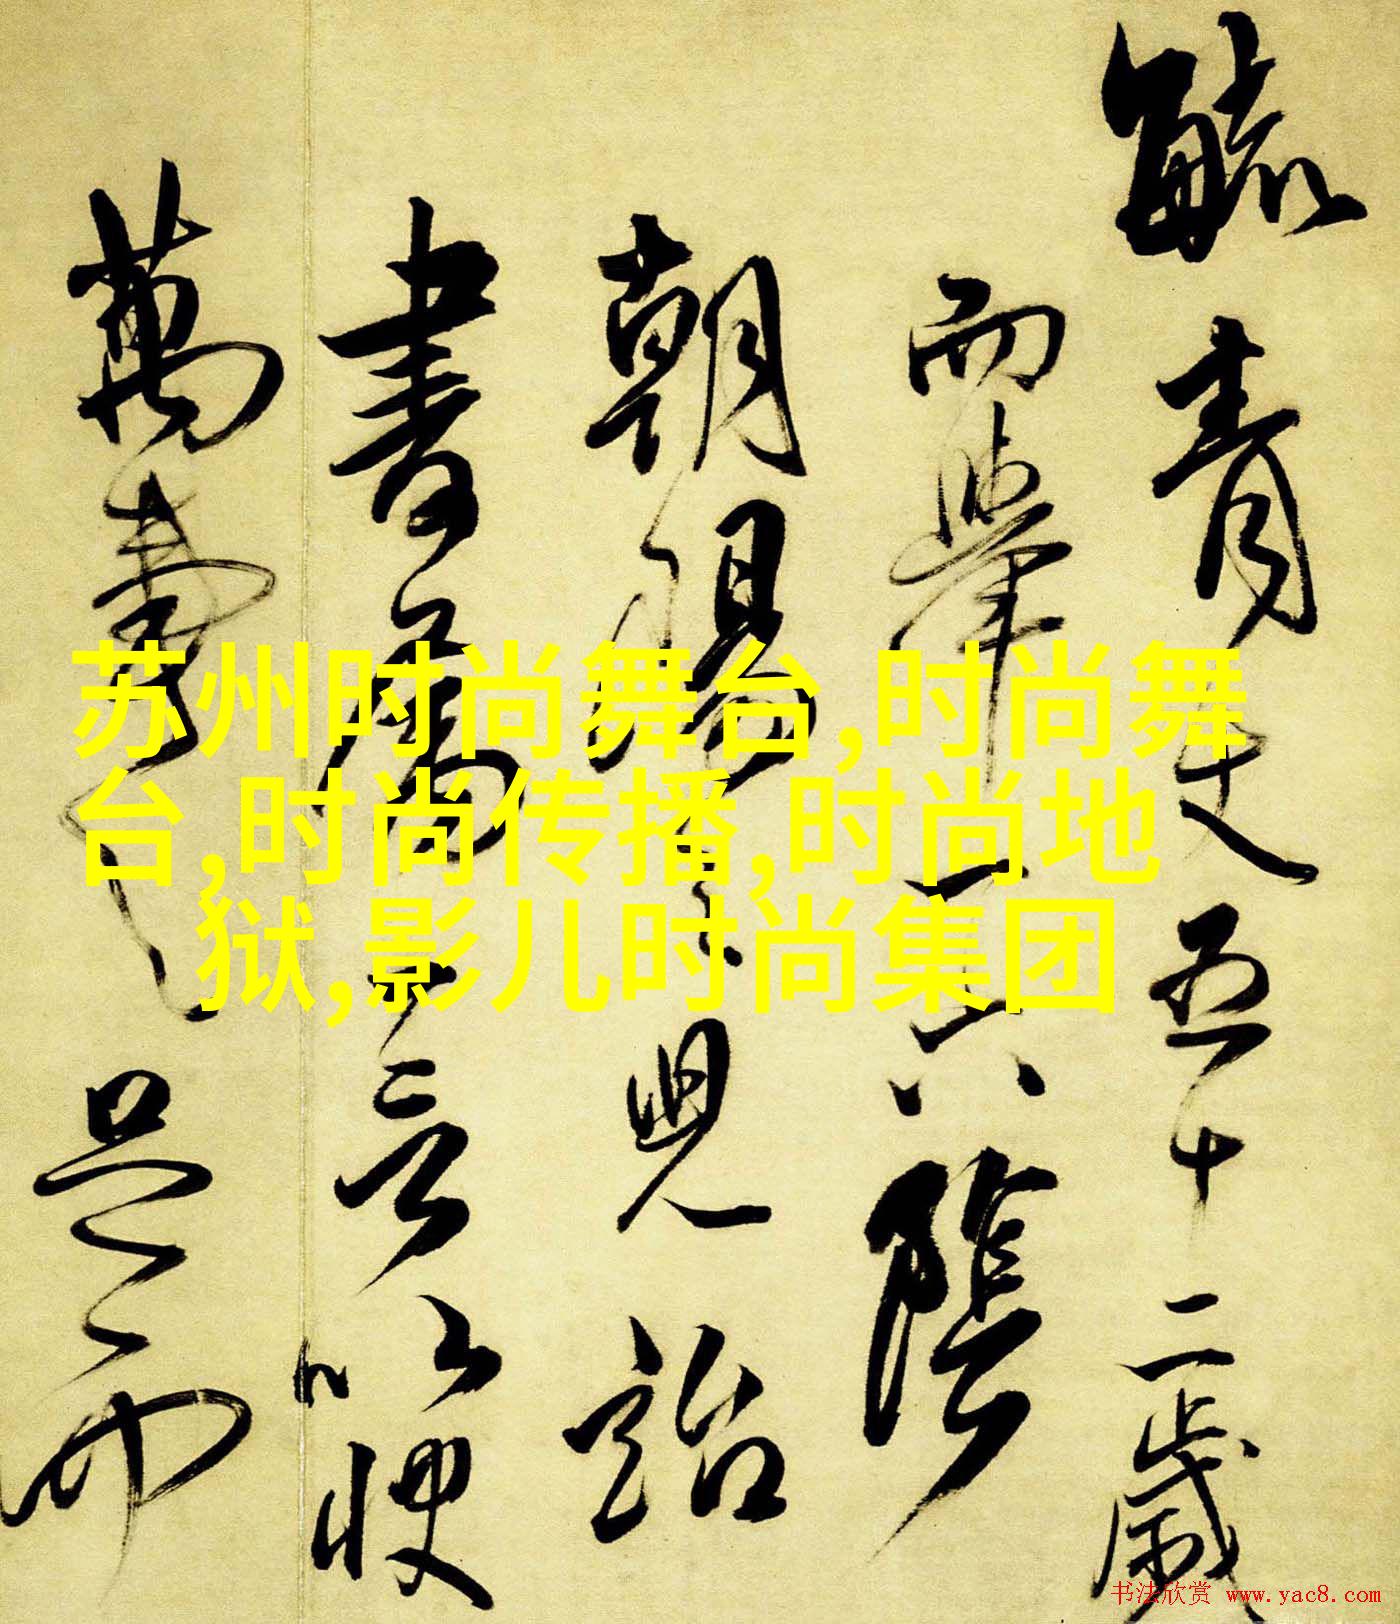 毓青丈五十二歲
而舉一六陰
朝陽之兒詒
書屬言以梗
萬壽是而
苏州时尚舞台,时尚舞
台,时尚传播,时尚地
狱,影儿时尚集团
书法欣赏 www.yac8.com